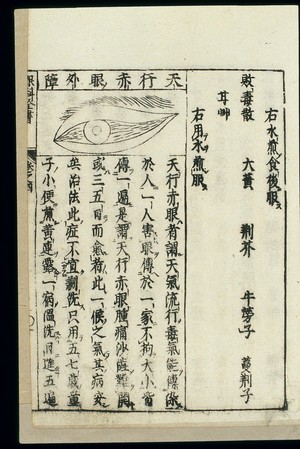 右水煎食後服
敗毒散 大黃 荆芥 牛蒡子 蔓荆子
右用水煎服
天行赤眼外障
天行赤眼者謂天氣流行毒氣能傳
於人一人害眼傳於一家不拘大小皆
傳一遍是謂天行赤眼腫痛沙澁難開
或三五日而愈者此一候之氣其病安
矣治法此症不宜劆洗只用五七歲童
子小便煎黃連露一宿溫洗日進五遍